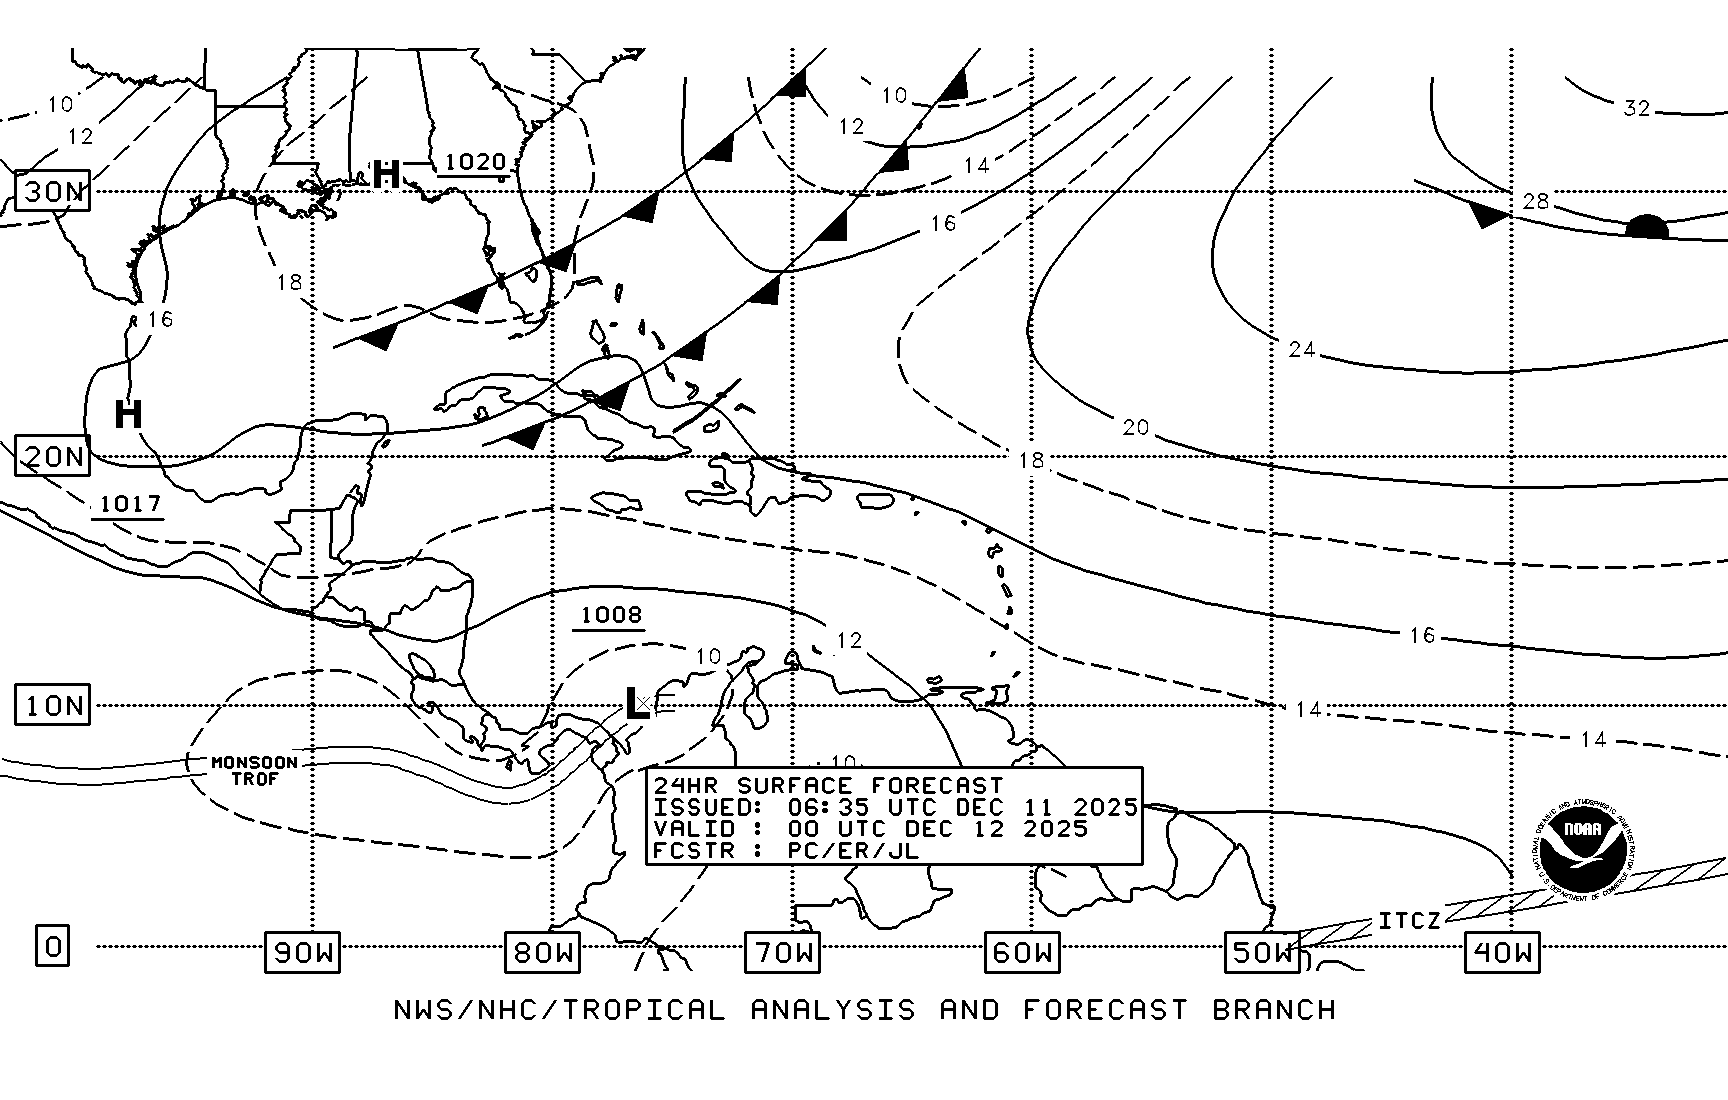 10
12
10
12
14
32
1020
H
30N
28
16
18
16
24
H
20
20N
18
1017
1008
16
12
10
L
10N
14
14
MONSOON
TROF
10
24HR SURFACE FORECAST
ISSUED: 06:35 UTC DEC 11 2025
VALID : 00 UTC DEC 12 2025
FCSTR : PC/ER/JL
NOAA
NATIONAL OCEANIC AND ATMOSPHERIC ADMINISTRATION
U.S. DEPARTMENT OF COMMERCE
ITCZ
0
90W
80W
70W
60W
50W
40W
NWS/NHC/TROPICAL ANALYSIS AND FORECAST BRANCH